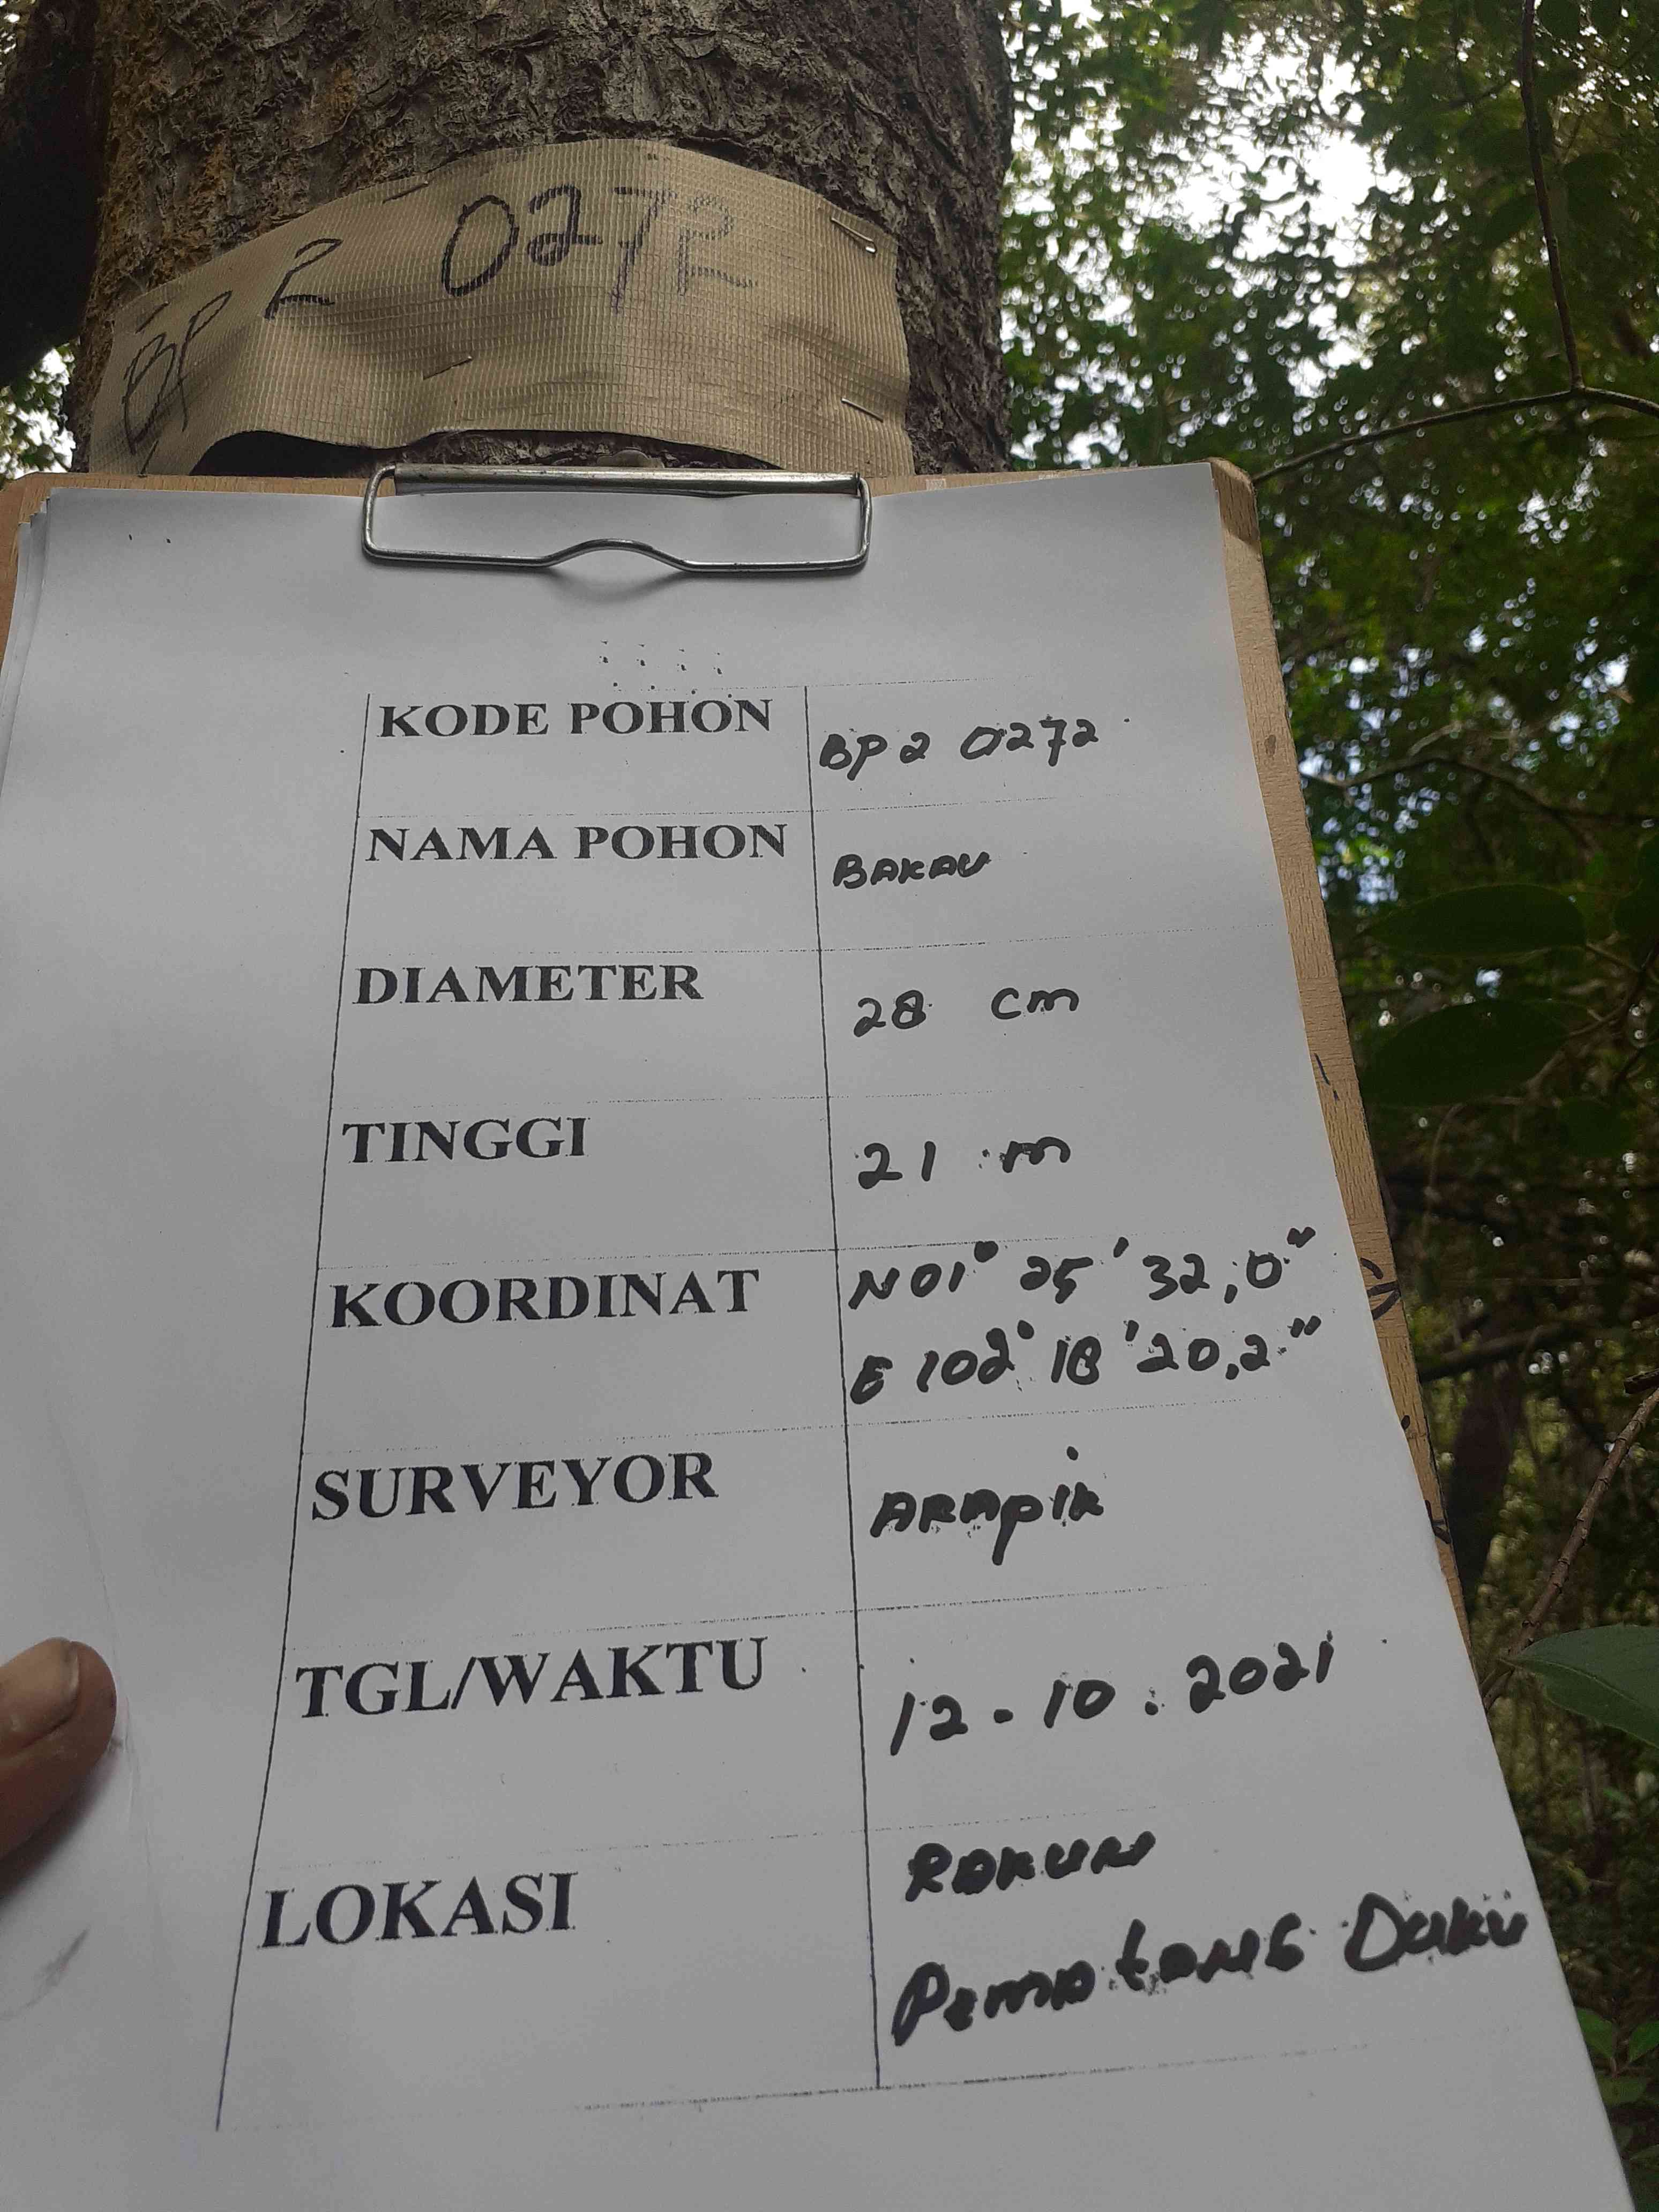 BP 2 0272
KODE POHON BP 2 0272
NAMA POHON BAKAU
DIAMETER 28 cm
TINGGI 21 m
KOORDINAT N 01° 25' 32,0"
E 102° 18' 20,2"
SURVEYOR ARAPIK
TGL/WAKTU 12-10.2021
LOKASI
PEMATANG Duku